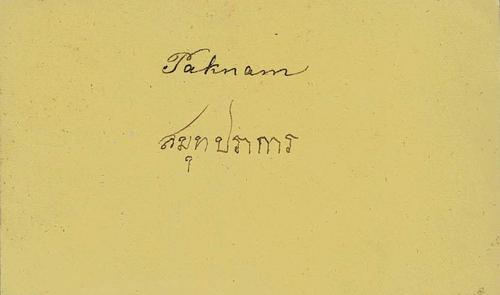 Paknam
สมุทปราการ